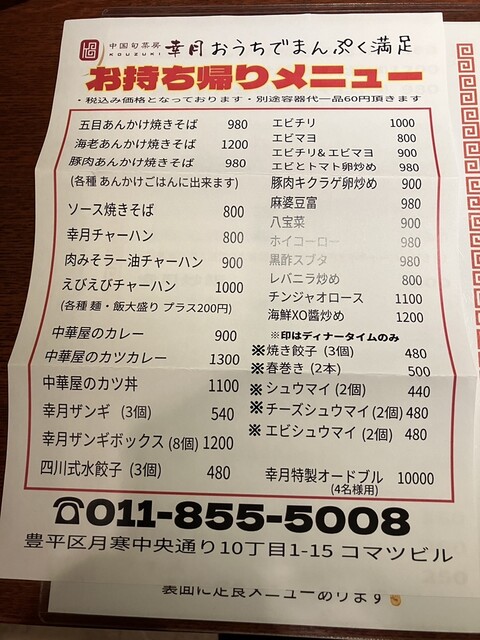 中国旬菜房
KOUZUKI
幸月おうちでまんぷく満足
お持ち帰りメニュー
・税込み価格となっております・別途容器代一品60円頂きます
五目あんかけ焼きそば 980
海老あんかけ焼きそば 1200
豚肉あんかけ焼きそば 980
(各種 あんかけごはんに出来ます)
ソース焼きそば 800
幸月チャーハン 800
肉みそラー油チャーハン 900
えびえびチャーハン 1000
(各種 麺・飯大盛り プラス200円)
中華屋のカレー 900
中華屋のカツカレー 1300
中華屋のカツ丼 1100
幸月ザンギ (3個) 540
幸月ザンギボックス (8個) 1200
四川式水餃子 (3個) 480
エビチリ 1000
エビマヨ 800
エビチリ&エビマヨ 900
エビとトマト卵炒め 980
豚肉キクラゲ卵炒め 900
麻婆豆富 980
八宝菜 900
ホイコーロー 980
黒酢スブタ 980
レバニラ炒め 800
チンジャオロース 1100
海鮮XO醬炒め 1200
※印はディナータイムのみ
※焼き餃子 (3個) 480
※春巻き (2本) 500
※シュウマイ (2個) 440
※チーズシュウマイ (2個) 480
※エビシュウマイ (2個) 480
幸月特製オードブル 10000
(4名様用)
☎011-855-5008
豊平区月寒中央通り10丁目1-15 コマツビル
裏面に定食メニューあります